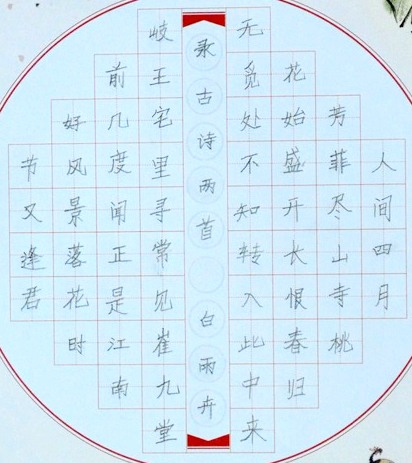 人间四月
芳菲尽山寺桃
花始盛开长恨春归
无觅处不知转入此中来
录古诗两首 白雨卉
岐王宅里寻常见崔九堂
前几度闻正是江南
好风景落花时
节又逢君